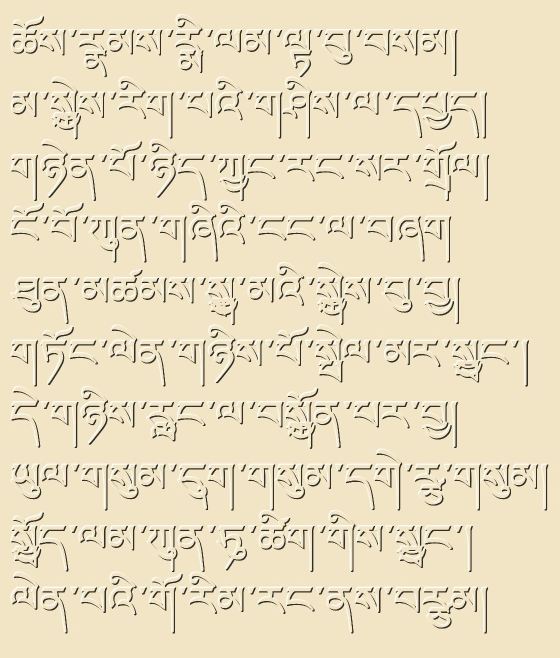 ཆོས་རྣམས་རྨི་ལམ་ལྟ་བུ་བསམ།
མ་སྐྱེས་རིག་པའི་གཤིས་ལ་དཔྱད།
གཉེན་པོ་ཉིད་ཀྱང་རང་སར་གྲོལ།
ངོ་བོ་ཀུན་གཞིའི་ངང་ལ་བཞག
ཐུན་མཚམས་སྒྱུ་མའི་སྐྱེས་བུ་བྱ།
གཏོང་ལེན་གཉིས་པོ་སྤེལ་མར་སྦྱང་།
དེ་གཉིས་རླུང་ལ་བསྐྱོན་པར་བྱ།
ཡུལ་གསུམ་དུག་གསུམ་དགེ་རྩ་གསུམ།
སྤྱོད་ལམ་ཀུན་ཏུ་ཚིག་གིས་སྦྱང་།
ལེན་པའི་གོ་རིམ་རང་ནས་བརྩམ།